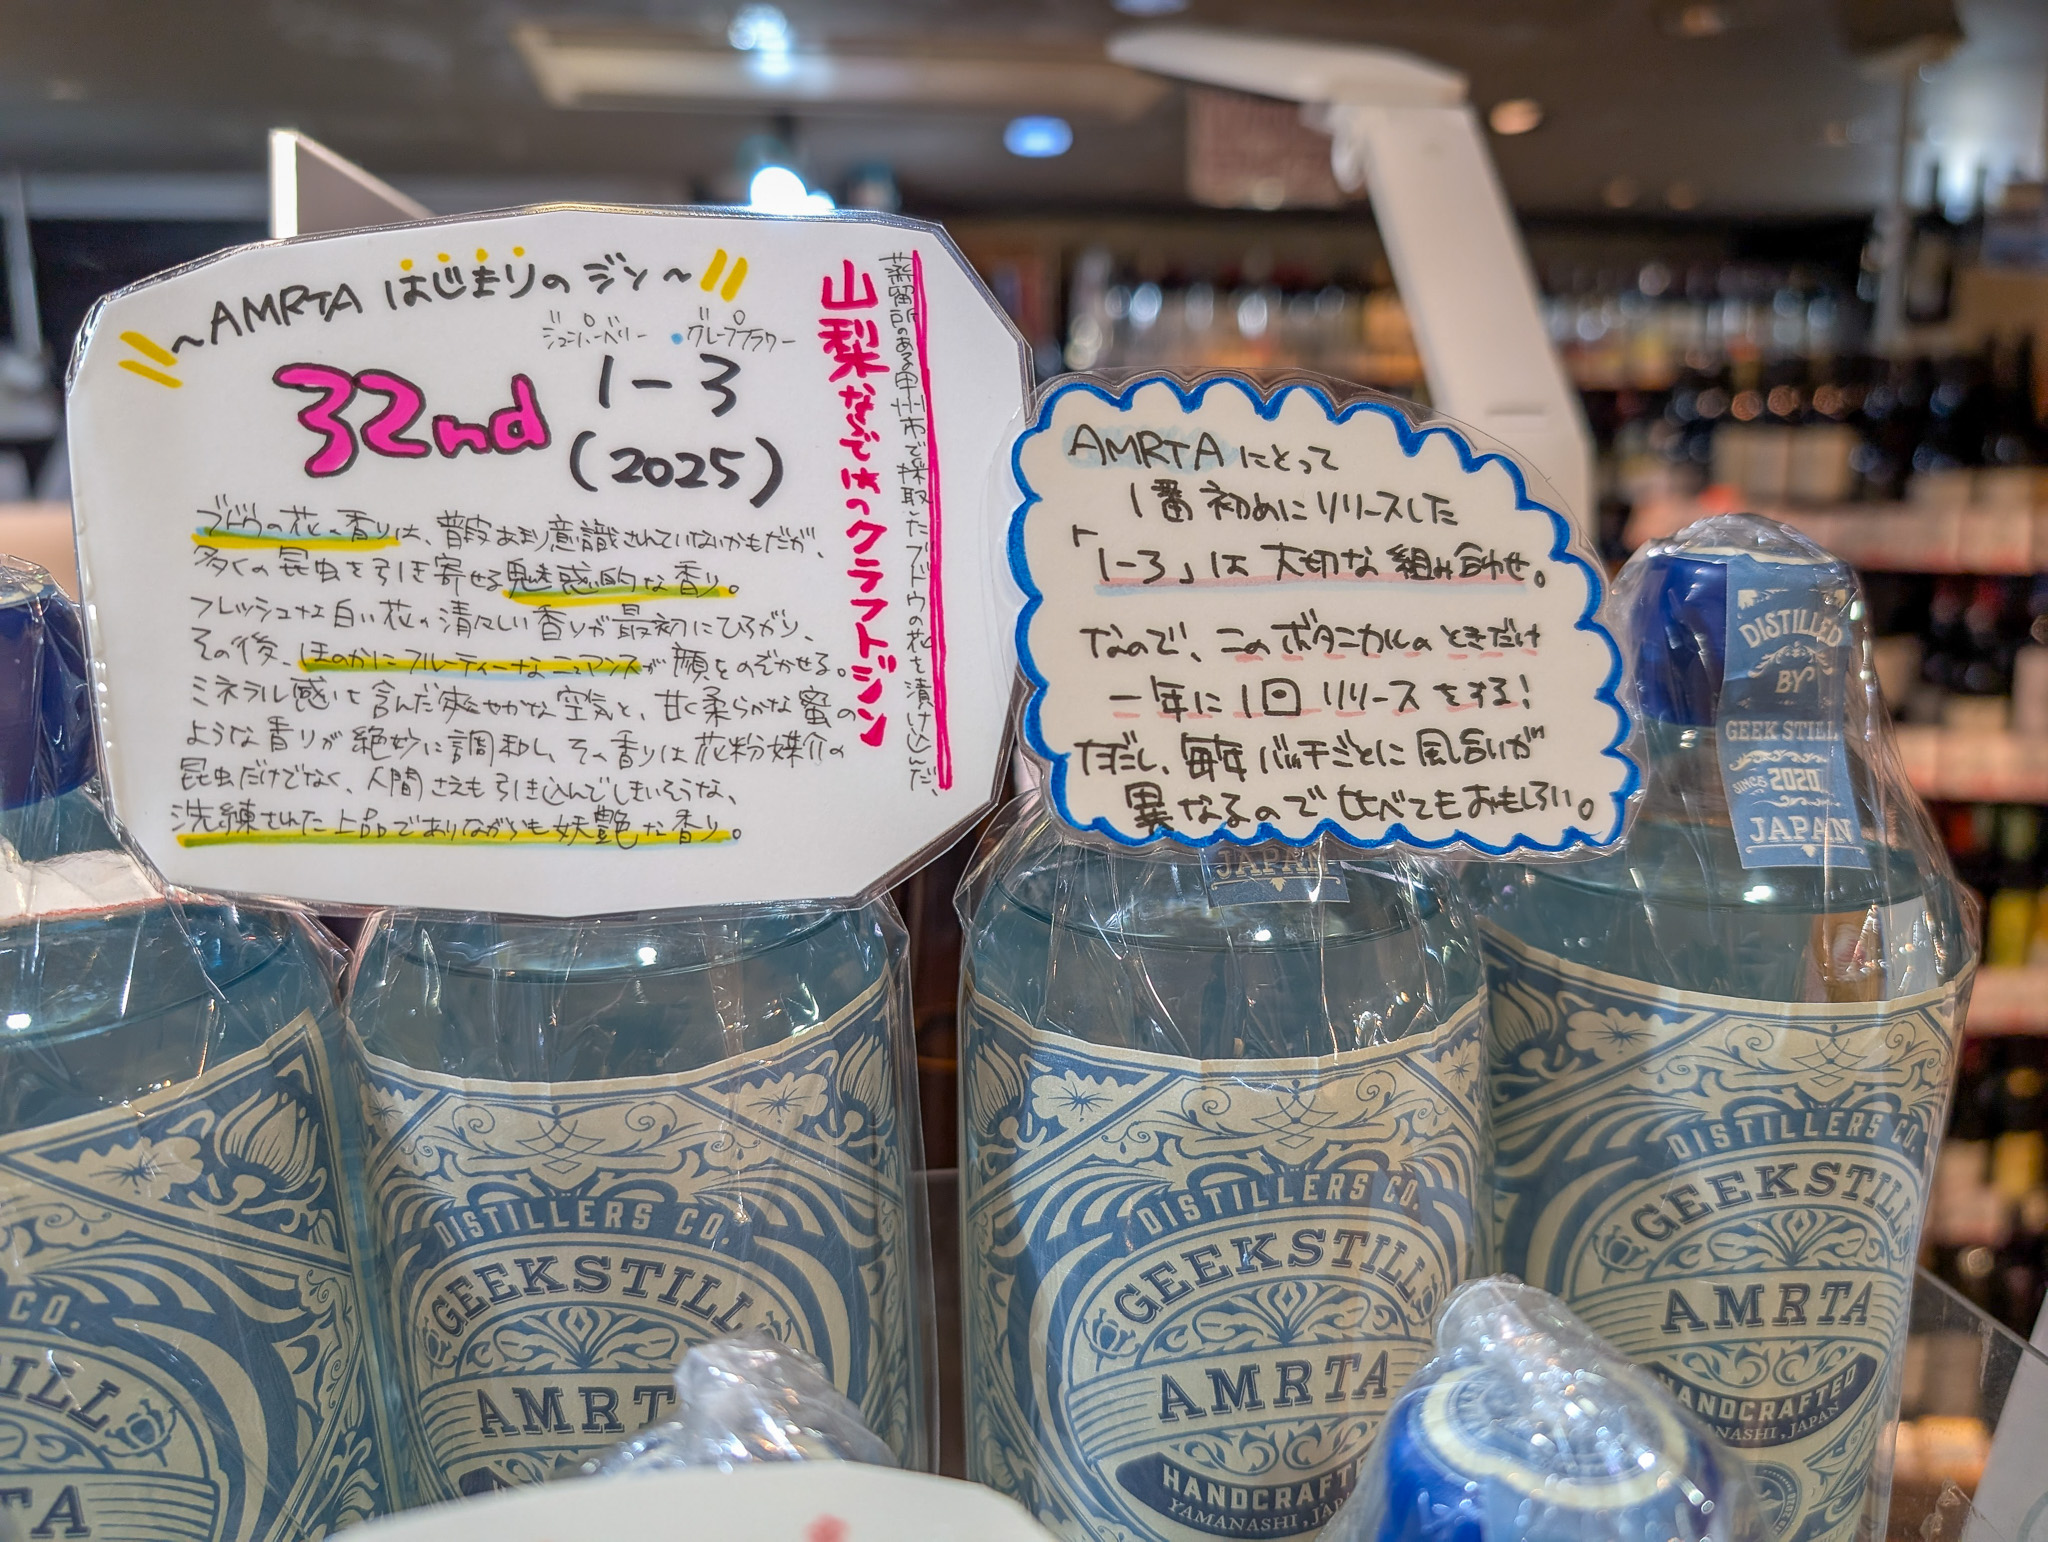 ~AMRTA はじまりのジン~
ジュニパーベリー ・グレープフラワー
32nd 1-3
(2025)
ブドウの花の香りは、普段あまり意識されていないかもだが、
多くの昆虫を引き寄せる魅惑的な香り。
フレッシュな白い花の清々しい香りが最初にひろがり、
その後、ほのかにフルーティーなニュアンスが顔をのぞかせる。
ミネラル感を含んだ爽やかな空気と、甘く柔らかな蜜の
ような香りが絶妙に調和し、その香りは花粉媒介の
昆虫だけでなく、人間さえも引き込んでしまいそうな、
洗練された上品でありながらも妖艶な香り。
蒸留所のある甲州市で採取したブドウの花を漬け込んだ、
山梨ならではのクラフトジン
AMRTAにとって
1番初めにリリースした
「1-3」は大切な組み合わせ。
なので、このボタニカルのときだけ
一年に1回リリースをする!
ただし、毎年バッチごとに風合いが
異なるので比べてもおもしろい。
DISTILLED
BY
GEEK STILL
SINCE 2020
JAPAN
JAPAN
CO.
ILL
TA
DISTILLERS CO.
GEEKSTILL
AMRT
DISTILLERS CO.
GEEKSTILL
AMRTA
HANDCRAFTE
YAMANASHI, JAP
DISTILLERS CO.
GEEKSTILL
AMRTA
HANDCRAFTED
MANASHI, JAPAN